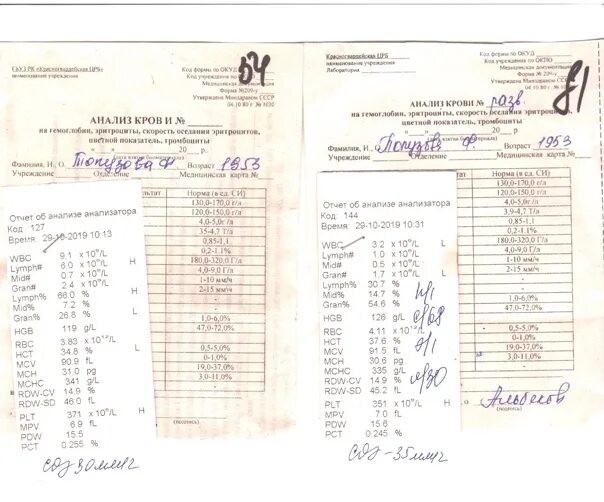 ГБУЗ РК «Красногвардейская ЦРБ»
наименование учреждения
Код формы по ОКУД
Код учреждения по
Медицинская документация
Форма №209-у
Утверждена Минздравом СССР
04.10.80 г. № 1030
54
АНАЛИЗ КРОВИ №
на гемоглобин, эритроциты, скорость оседания эритроцитов,
цветной показатель, тромбоциты
20 г.
Фамилия, И., О. Топузова Ф. Возраст 1953
Учреждение Отделение Медицинская карта №
Норма (в ед. СИ)
130,0-170,0 г/л
120,0-150,0 г/л
4,0-5,0г/л
35-4,7 Т/л
0,85-1,1
0,2-1.1%
180,0-320,0 Г/л
4,0-9,0 Г/л
1-10 мм/ч
2-15 мм/ч
1,0-6,0%
47,0-72,0%
0,5-5,0%
0-1,0%
19,0-37,0%
3,0-11,0%
Отчет об анализе анализатора
Код: 127
Время: 29-10-2019 10:13
WBC 9.1 x10⁹/L
Lymph# 6.0 x10⁹/L H
Mid# 0.7 x10⁹/L
Gran# 2.4 x10⁹/L
Lymph% 66.0 % H
Mid% 7.2 %
Gran% 26.8 % L
HGB 119 g/L
RBC 3.83 x10¹²/L
HCT 34.8 % L
MCV 90.9 fL
MCH 31.0 pg
MCHC 341 g/L
RDW-CV 14.9 %
RDW-SD 46.0 fL
PLT 371 x10⁹/L H
MPV 6.9 fL
PDW 15.5
PCT 0.255 %
СОЭ 30 мм/ч
Красногвардейская ЦРБ
наименование учреждения
Лаборатория
Код формы по ОКУД
Код учреждения по ОКПО
Медицинская документация
Форма № 209-у
Утверждена Минздравом СССР
04 10 80 г № 1030
81
АНАЛИЗ КРОВИ № разв
на гемоглобин, эритроциты, скорость оседания эритроцитов,
цветовой показатель, тромбоциты
20 г.
Фамилия, И., Топузова Ф. Возраст 1953
Учреждение Отделение Медицинская карта №
Норма (в ед. СИ)
130,0-170,0 г/л
120,0-150,0 г/л
4,0-5,0 Г/л
3,9-4,7 Т/л
0,85-1,1
0,2-1.1%
180,0-320,0 Г/л
4,0-9,0 Г/л
1-10 мм/ч
2-15мм/ч
1,0-6,0%
47,0-72,0%
0,5-5,0%
0-1,0%
19,0-37,0%
3,0-11,0%
Отчет об анализе анализатора
Код: 144
Время: 29-10-2019 10:31
WBC 3.2 x10⁹/L L
Lymph# 1.0 x10⁹/L
Mid# 0.5 x10⁹/L
Gran# 1.7 x10⁹/L L
Lymph% 30.7 %
Mid% 14.7 %
Gran% 54.6 %
HGB 126 g/L
RBC 4.11 x10¹²/L
HCT 37.6 %
MCV 91.5 fL
MCH 30.6 pg
MCHC 335 g/L
RDW-CV 14.9 %
RDW-SD 45.2 fL
PLT 351 x10⁹/L H
MPV 7.0 fL
PDW 15.6
PCT 0.245 %
(подпись)
СОЭ -35мм/ч